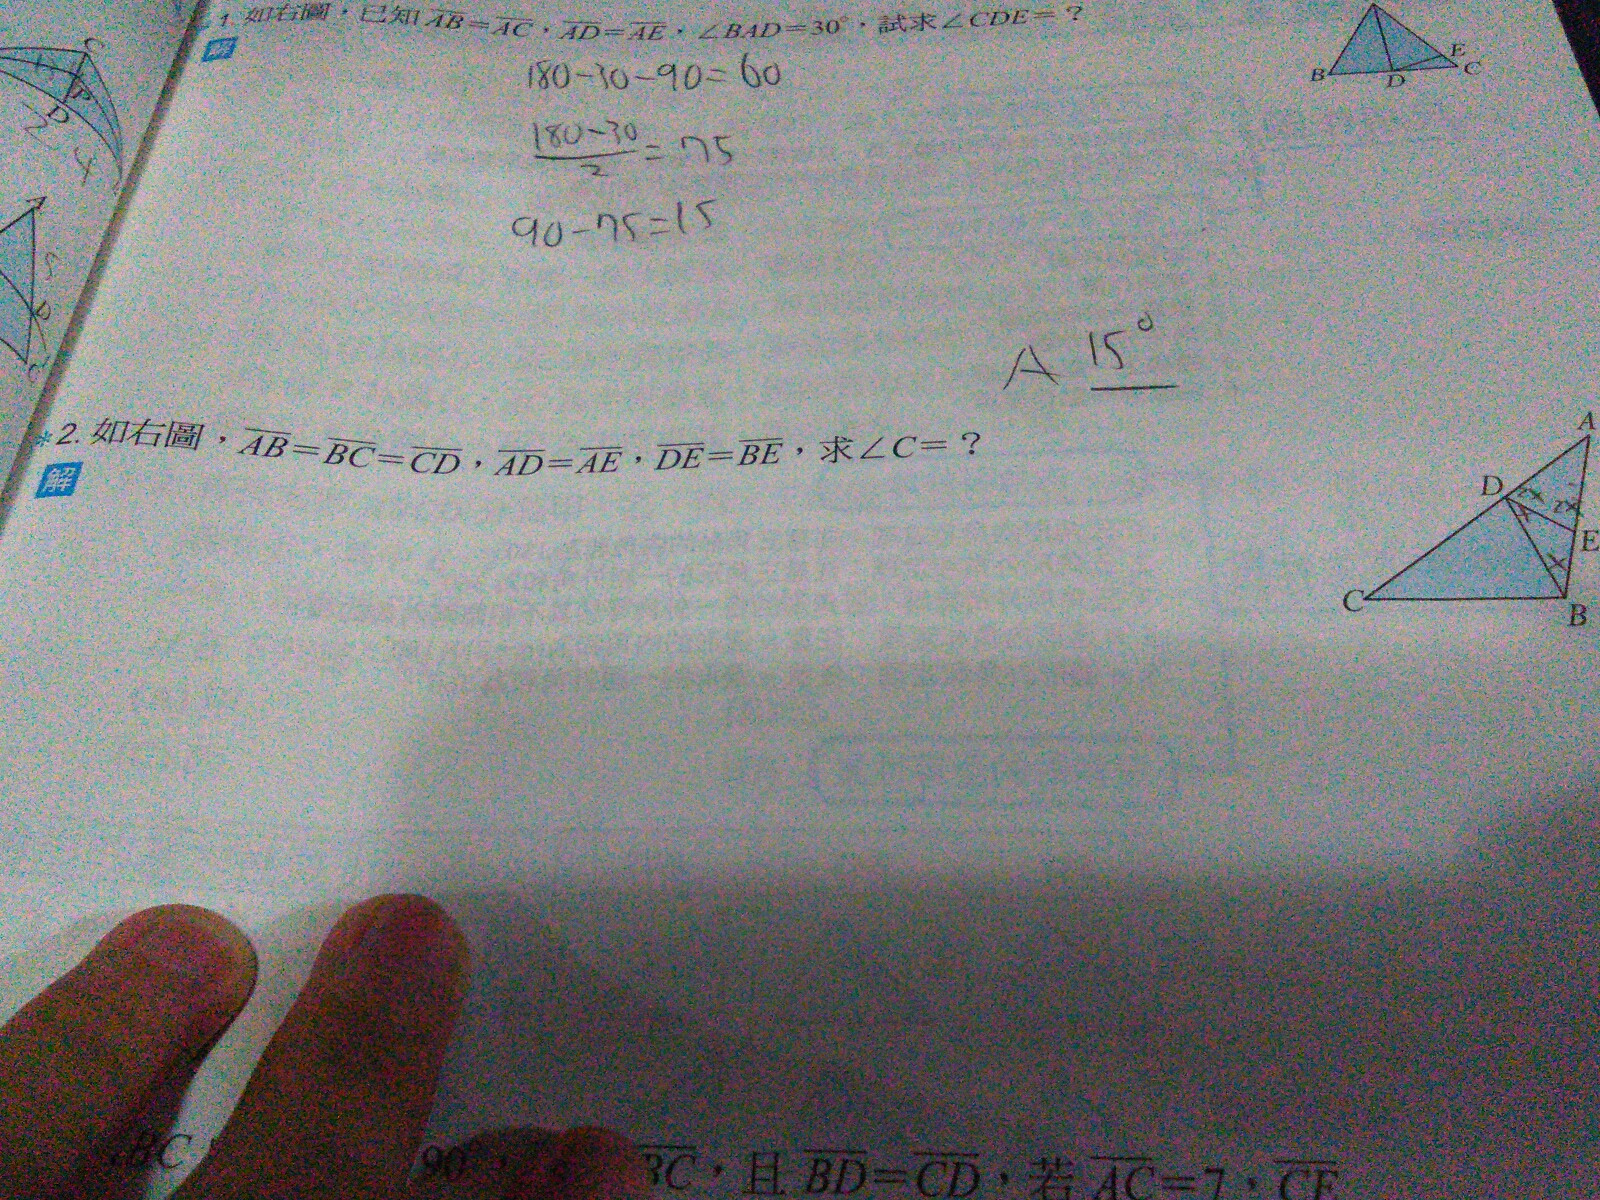 1. 如右圖，已知 AB=AC，AD=AE，∠BAD=30°，試求∠CDE=？
解
180-30-90=60
180-30
2
=75
90-75=15
A 15°
B D E C
*2. 如右圖，AB=BC=CD，AD=AE，DE=BE，求∠C=？
解
A
D 2x 2x
x E
x
C B
C
P
D
2 4
5
C
BC
90° BC，且 BD=CD，若 AC=7，CE